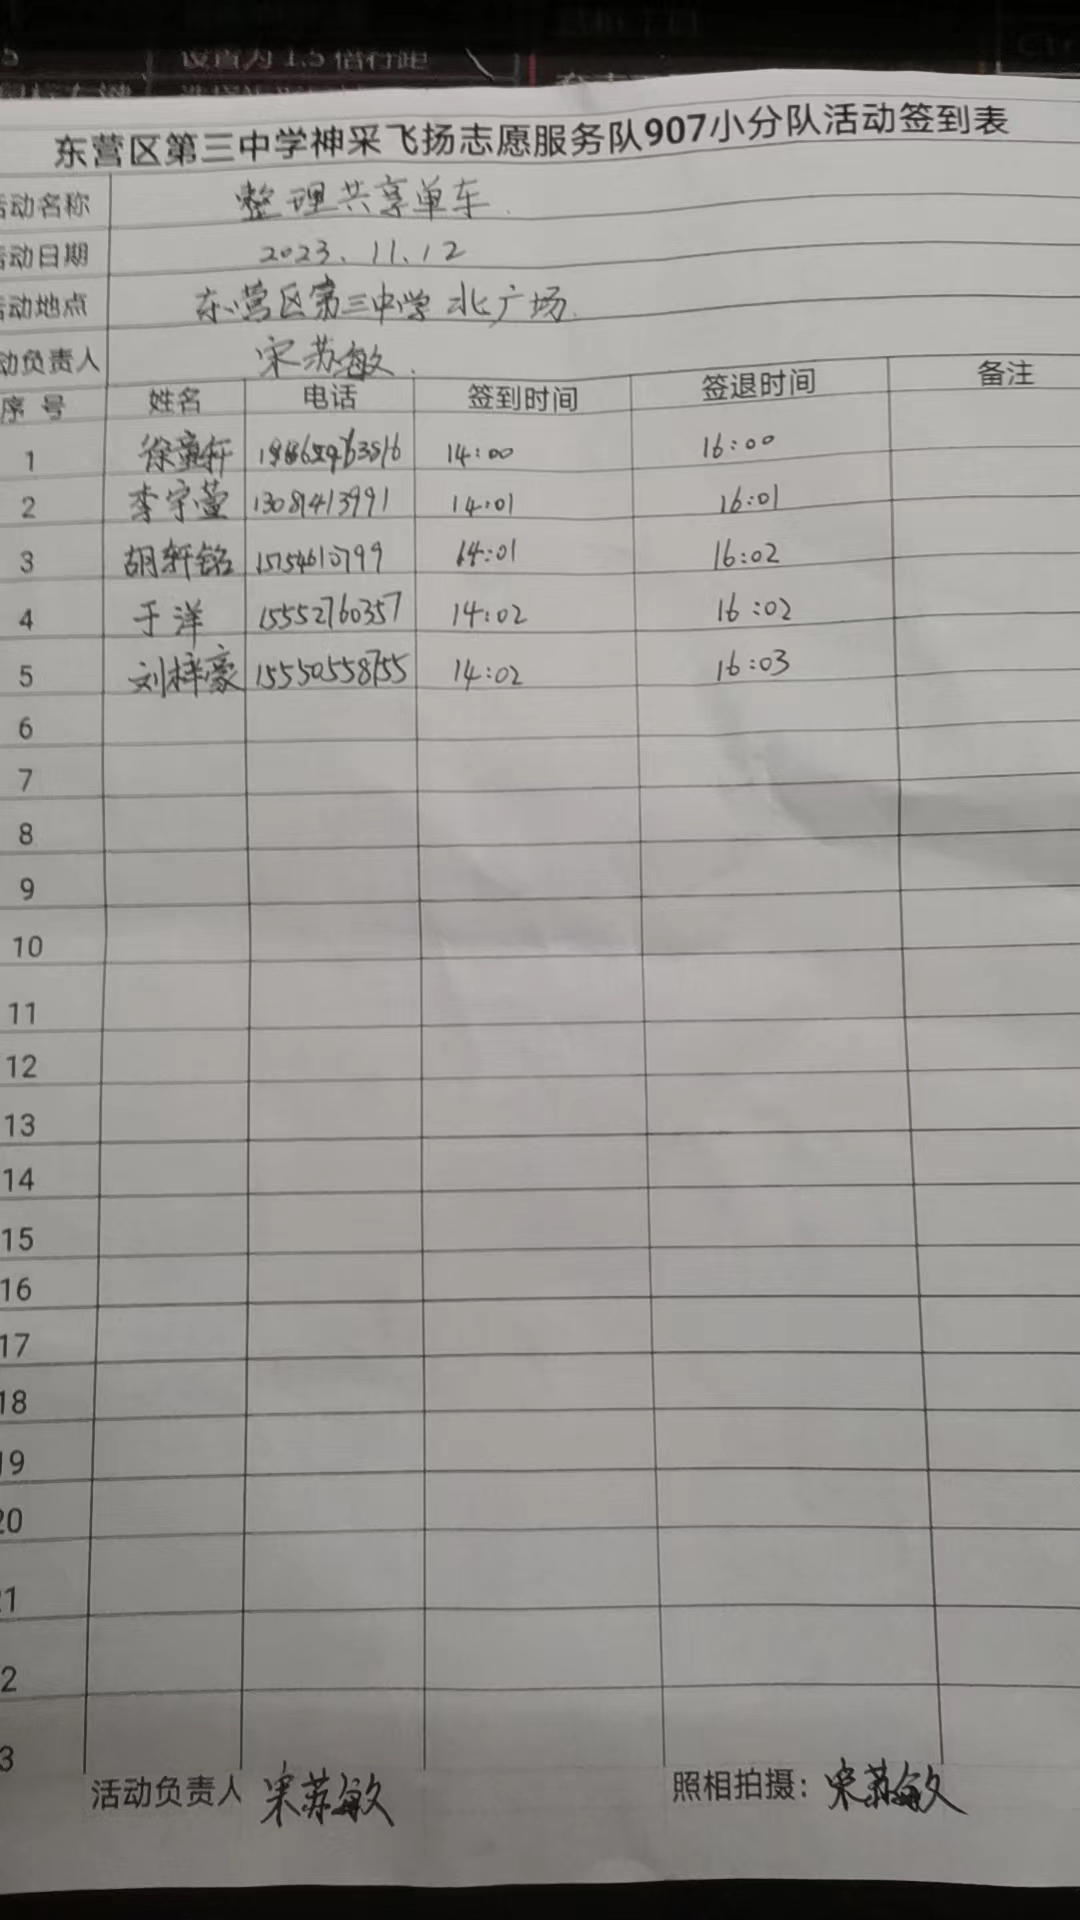 设置为1.5倍行距
东营区第三中学神采飞扬志愿服务队907小分队活动签到表
活动名称 整理共享单车
活动日期 2023.11.12
活动地点 东营区第三中学北广场
活动负责人 宋苏敏
序号 姓名 电话 签到时间 签退时间 备注
1 徐 轩 14:00 16:00
2 李宇萱 13081413991 14:01 16:01
3 胡轩铭 14:01 16:02
4 于洋 15552760357 14:02 16:02
5 刘梓豪 15550558755 14:02 16:03
6
7
8
9
10
11
12
13
14
15
16
17
18
19
20
1
2
3
活动负责人 宋苏敏 照相拍摄：宋苏敏